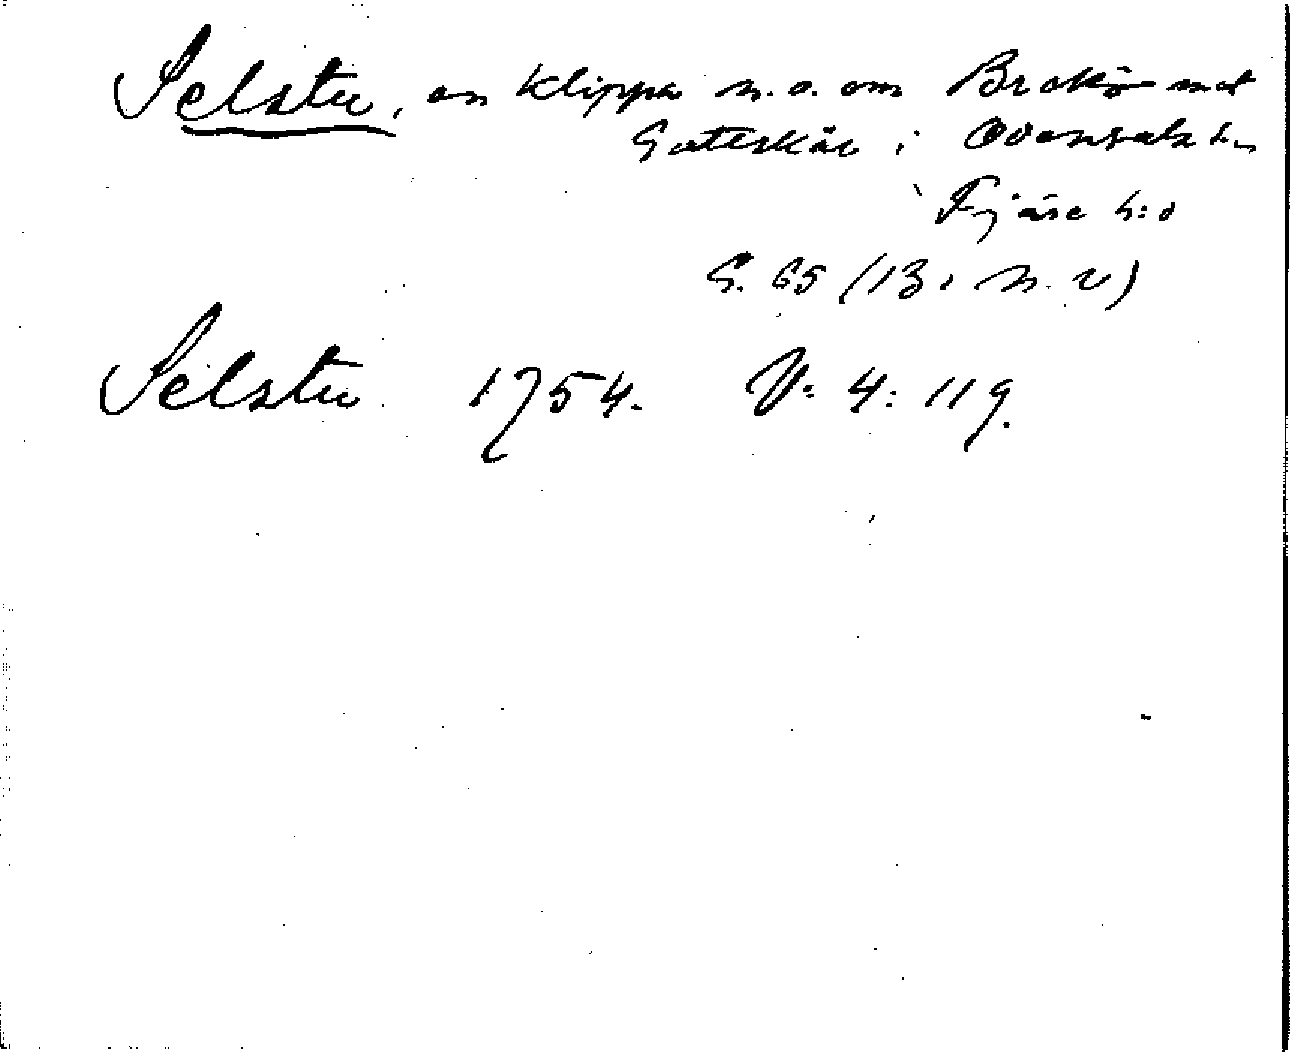 Selstu, en klippa n. o. om Brokö mot
Guteskär i Ödensala hn
i Fjäre h:d
G. 65 (13, n. v)
Selstu 1754. V: 4: 119.